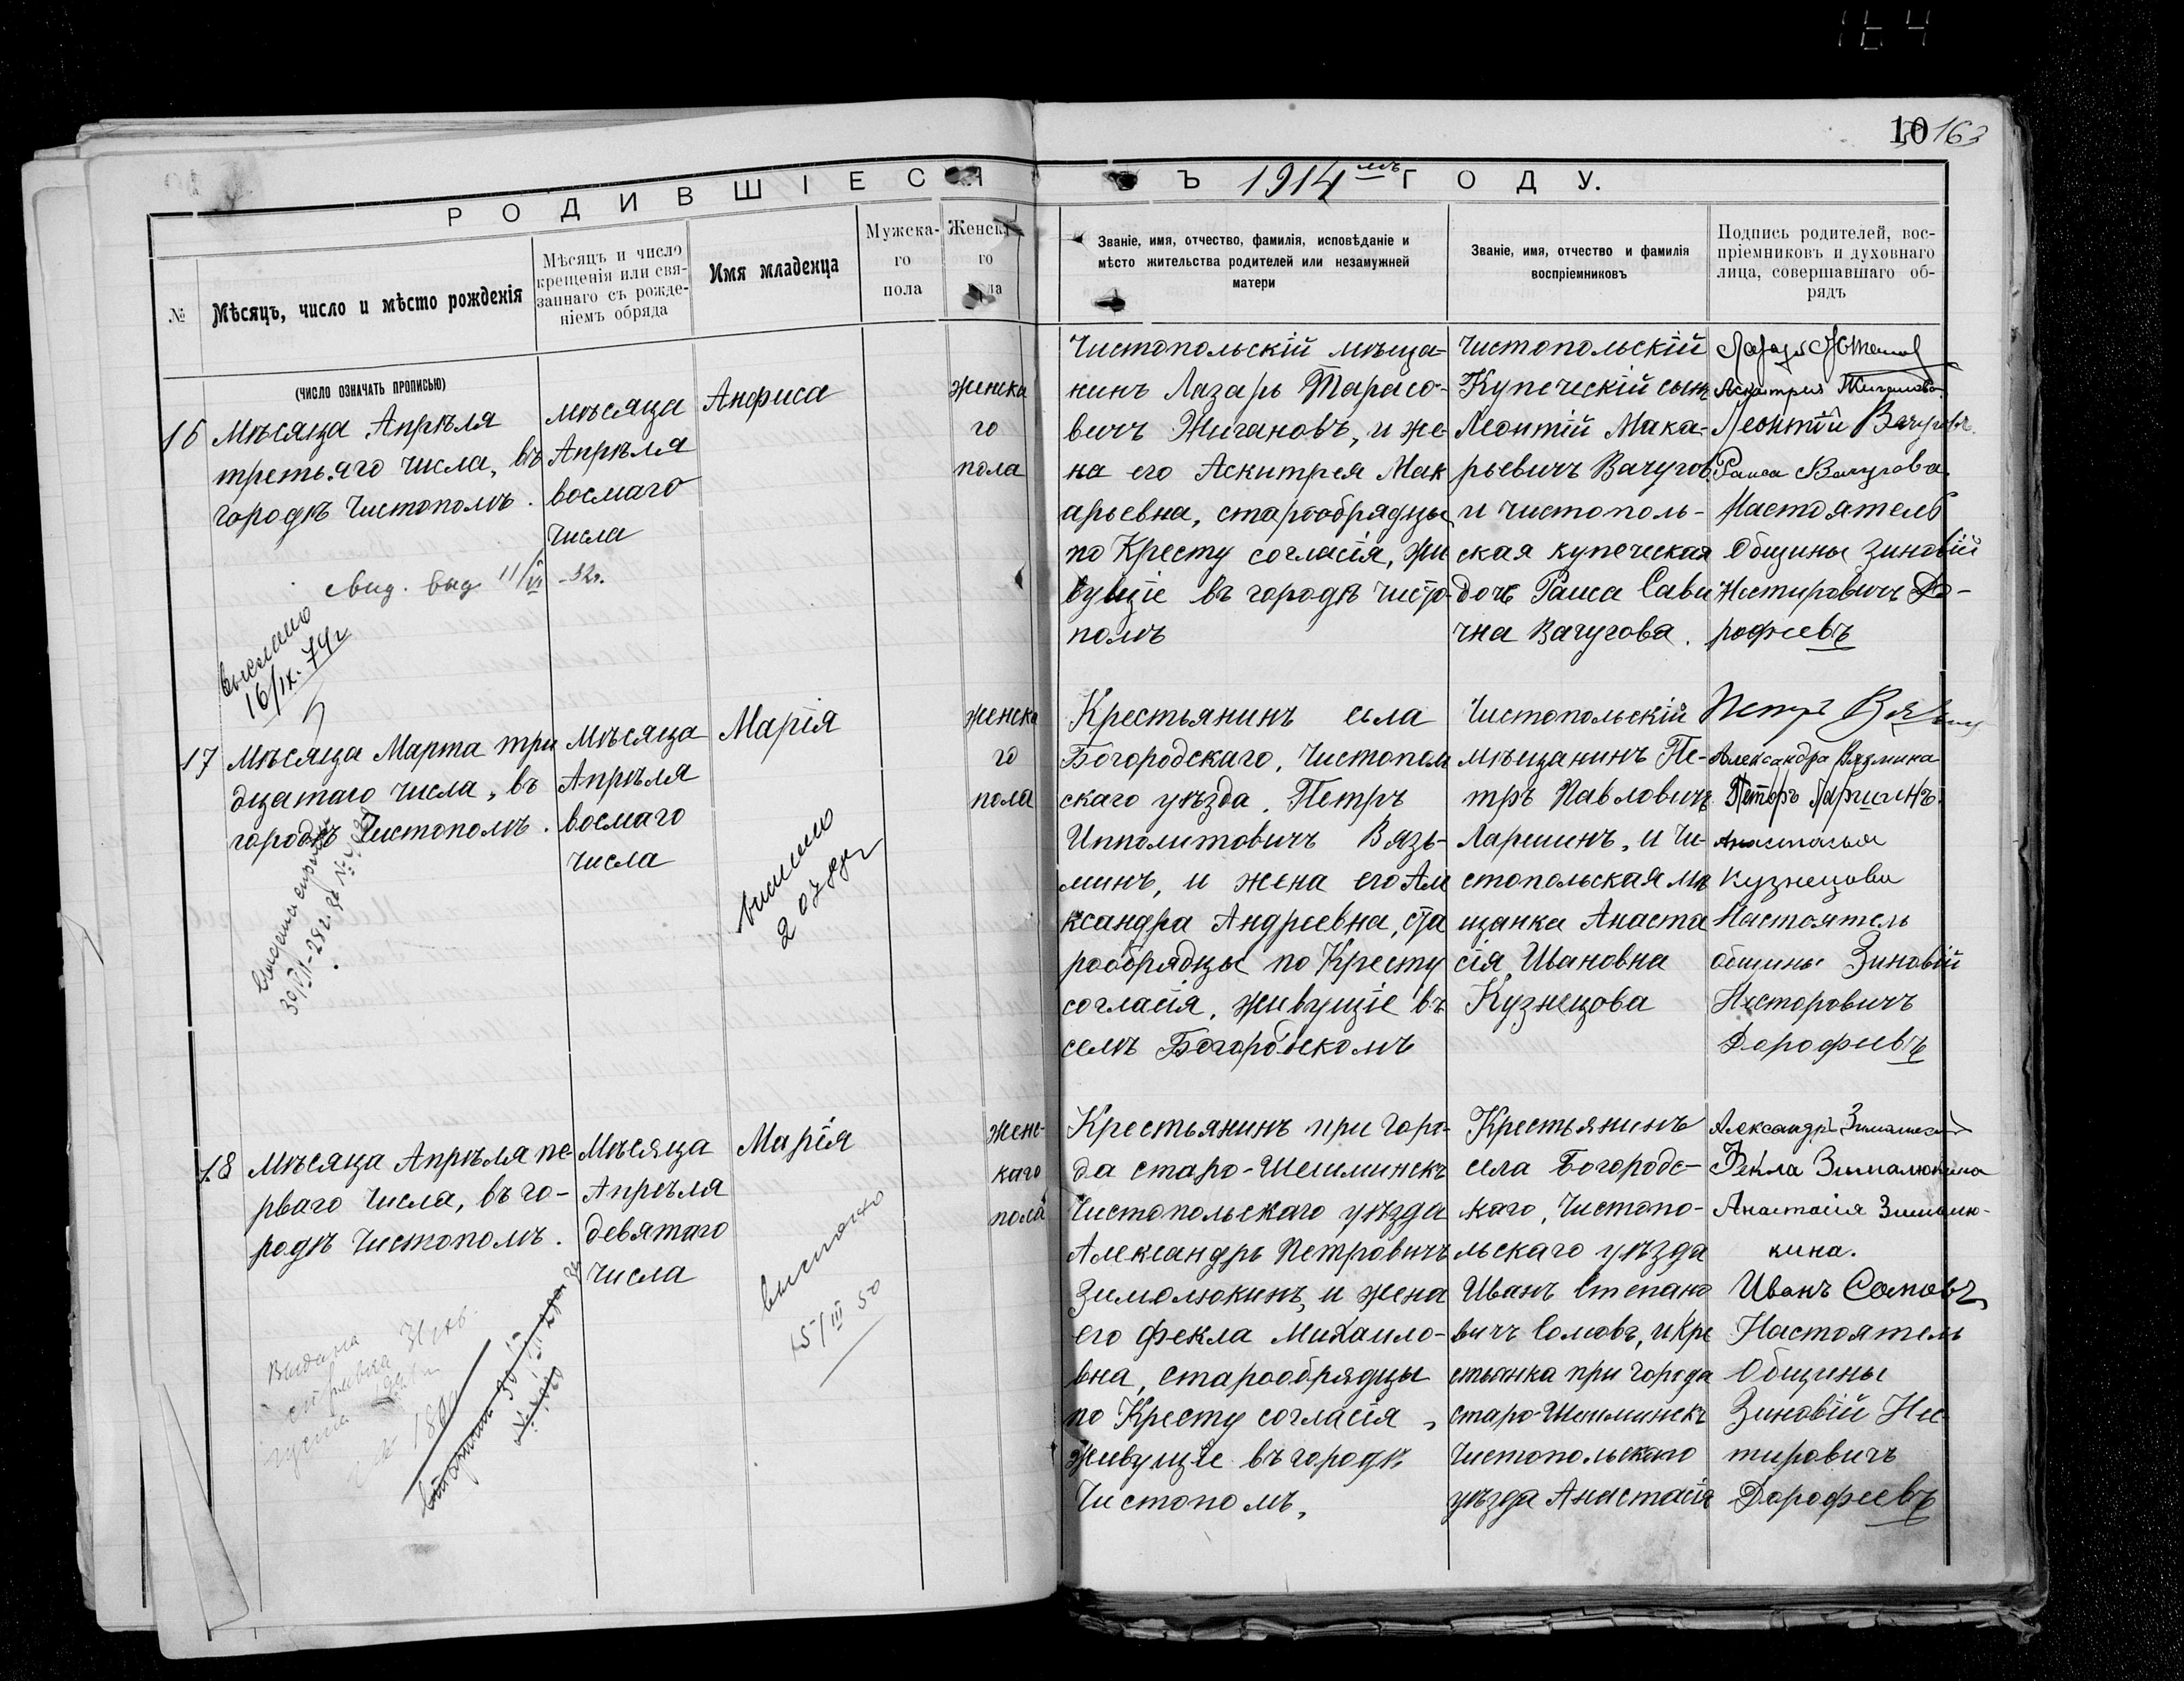 164
10 163
РОДИВШІЕСЯ
ВЪ 1914мъ ГОДУ.
№
Мѣсяцъ, число и мѣсто рожденія
Мѣсяцъ и число
крещенія или свя-
заннаго съ рожде-
ніемъ обряда
Имя младенца
Мужска-
го
пола
Женска-
го
пола
Званіе, имя, отчество, фамилія, исповѣданіе и
мѣсто жительства родителей или незамужней
матери
Званіе, имя, отчество и фамилія
воспріемниковъ
Подпись родителей, вос-
пріемниковъ и духовнаго
лица, совершавшаго об-
рядъ
(ЧИСЛО ОЗНАЧАТЬ ПРОПИСЬЮ)
16
Мѣсяца Апрѣля
третьяго числа, въ
городѣ Чистополѣ.
мѣсяца
Апрѣля
восмаго
числа
Анфиса
женска
го
пола
Чистопольскій мѣща-
нинъ Лазарь Тарасо-
вичъ Жигановъ, и же-
на его Аскитрея Мак
арьевна, старообрядцы
по Кресту согласія, жи
вущіе въ городѣ Чисто-
полѣ
Чистопольскій
Купеческій сынъ
Леонтій Мака-
рьевичъ Вачугов
и чистополь-
ская купеческая
дочь Раиса Сави
чна Вачугова.
Аскитрея Жиганова
Леонтій Вачуговъ
Раиса Вачугова
Настоятель
Общины Зиновій
Нестировичъ До-
рофеевъ
свид. выд 11/VI - 32г.
выслано
16/IX. 74г
17
Мѣсяца Марта три
дцатаго числа, въ
городѣ Чистополѣ.
Мѣсяца
Апрѣля
восмаго
числа
Марія
женска
го
пола
Крестьянинъ села
Богородскаго, Чистопол
скаго уѣзда. Петръ
Ипполитовичъ Вязь-
минъ, и жена его Але
ксандра Андреевна, ста
рообрядцы по Кресту
согласія, живущіе въ
селѣ Богородскомъ
Чистопольскій
мѣщанинъ Пе-
тръ Павловичъ
Ларшинъ, и Чи-
стопольская мѣ
щанка Анаста
сія Ивановна
Кузнецова
Петръ
Александра Вязмина
Петоръ Ларшинъ
Анастасья
Кузнецова
Настоятель
общины Зиновій
Несторовичъ
Дорофеевъ
выдана справка
выслано
18
Мѣсяца Апрѣля пе-
рваго числа, въ го-
родѣ Чистополѣ.
Мѣсяца
Апрѣля
девятаго
числа
Марія
жень-
каго
пола
Крестьянинъ при горо-
да старо-Шешминскъ
Чистопольскаго уѣзда
Александръ Петровичъ
Зимолюкинъ, и жена
его Фекла Михаило-
вна, старообрядцы
по Кресту согласія,
живущіе въ городѣ
Чистополѣ,
Крестьянинъ
села Богородс-
каго, Чистопо-
льскаго уѣзда
Иванъ Степано
вичъ Сомовъ, и Кре
стьянка при города
старо-Шешминскъ
Чистопольскаго
уѣзда Анастасія
Александръ
Фекла Зимолюкина
Анастасія Зимолю-
кина.
Иванъ Сомовъ
Настоятель
Общины
Зиновій Нес-
тировичъ
Дорофеевъ
Выдана
справка
выслано
15/III 50